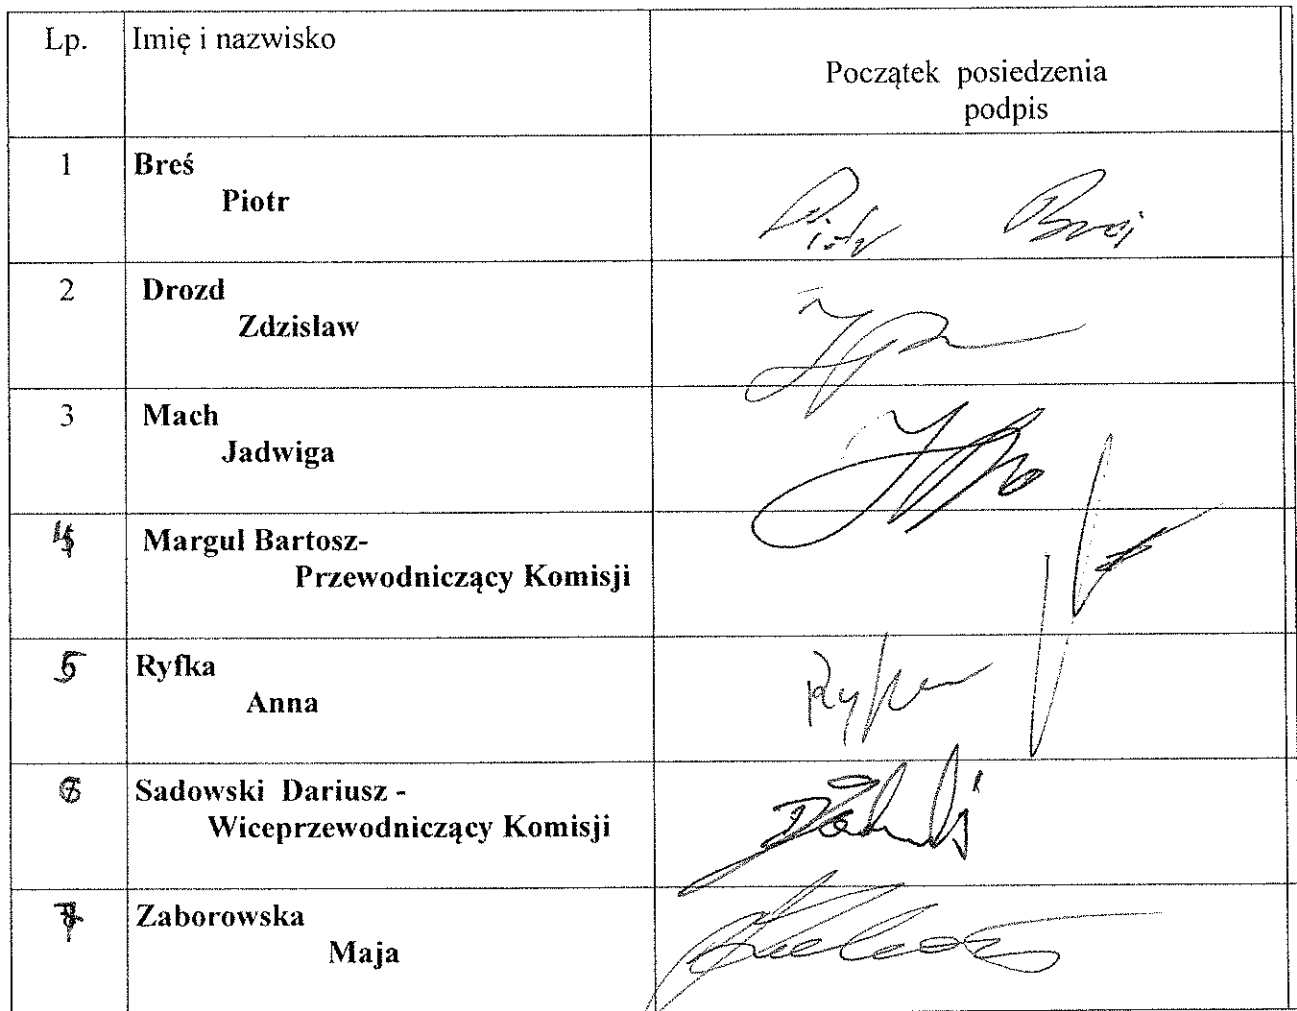 Lp. Imię i nazwisko
Początek posiedzenia
podpis
1 Breś
Piotr
Piotr Breś
2 Drozd
Zdzisław
3 Mach
Jadwiga
4 Margul Bartosz-
Przewodniczący Komisji
5 Ryfka
Anna
6 Sadowski Dariusz -
Wiceprzewodniczący Komisji
7 Zaborowska
Maja